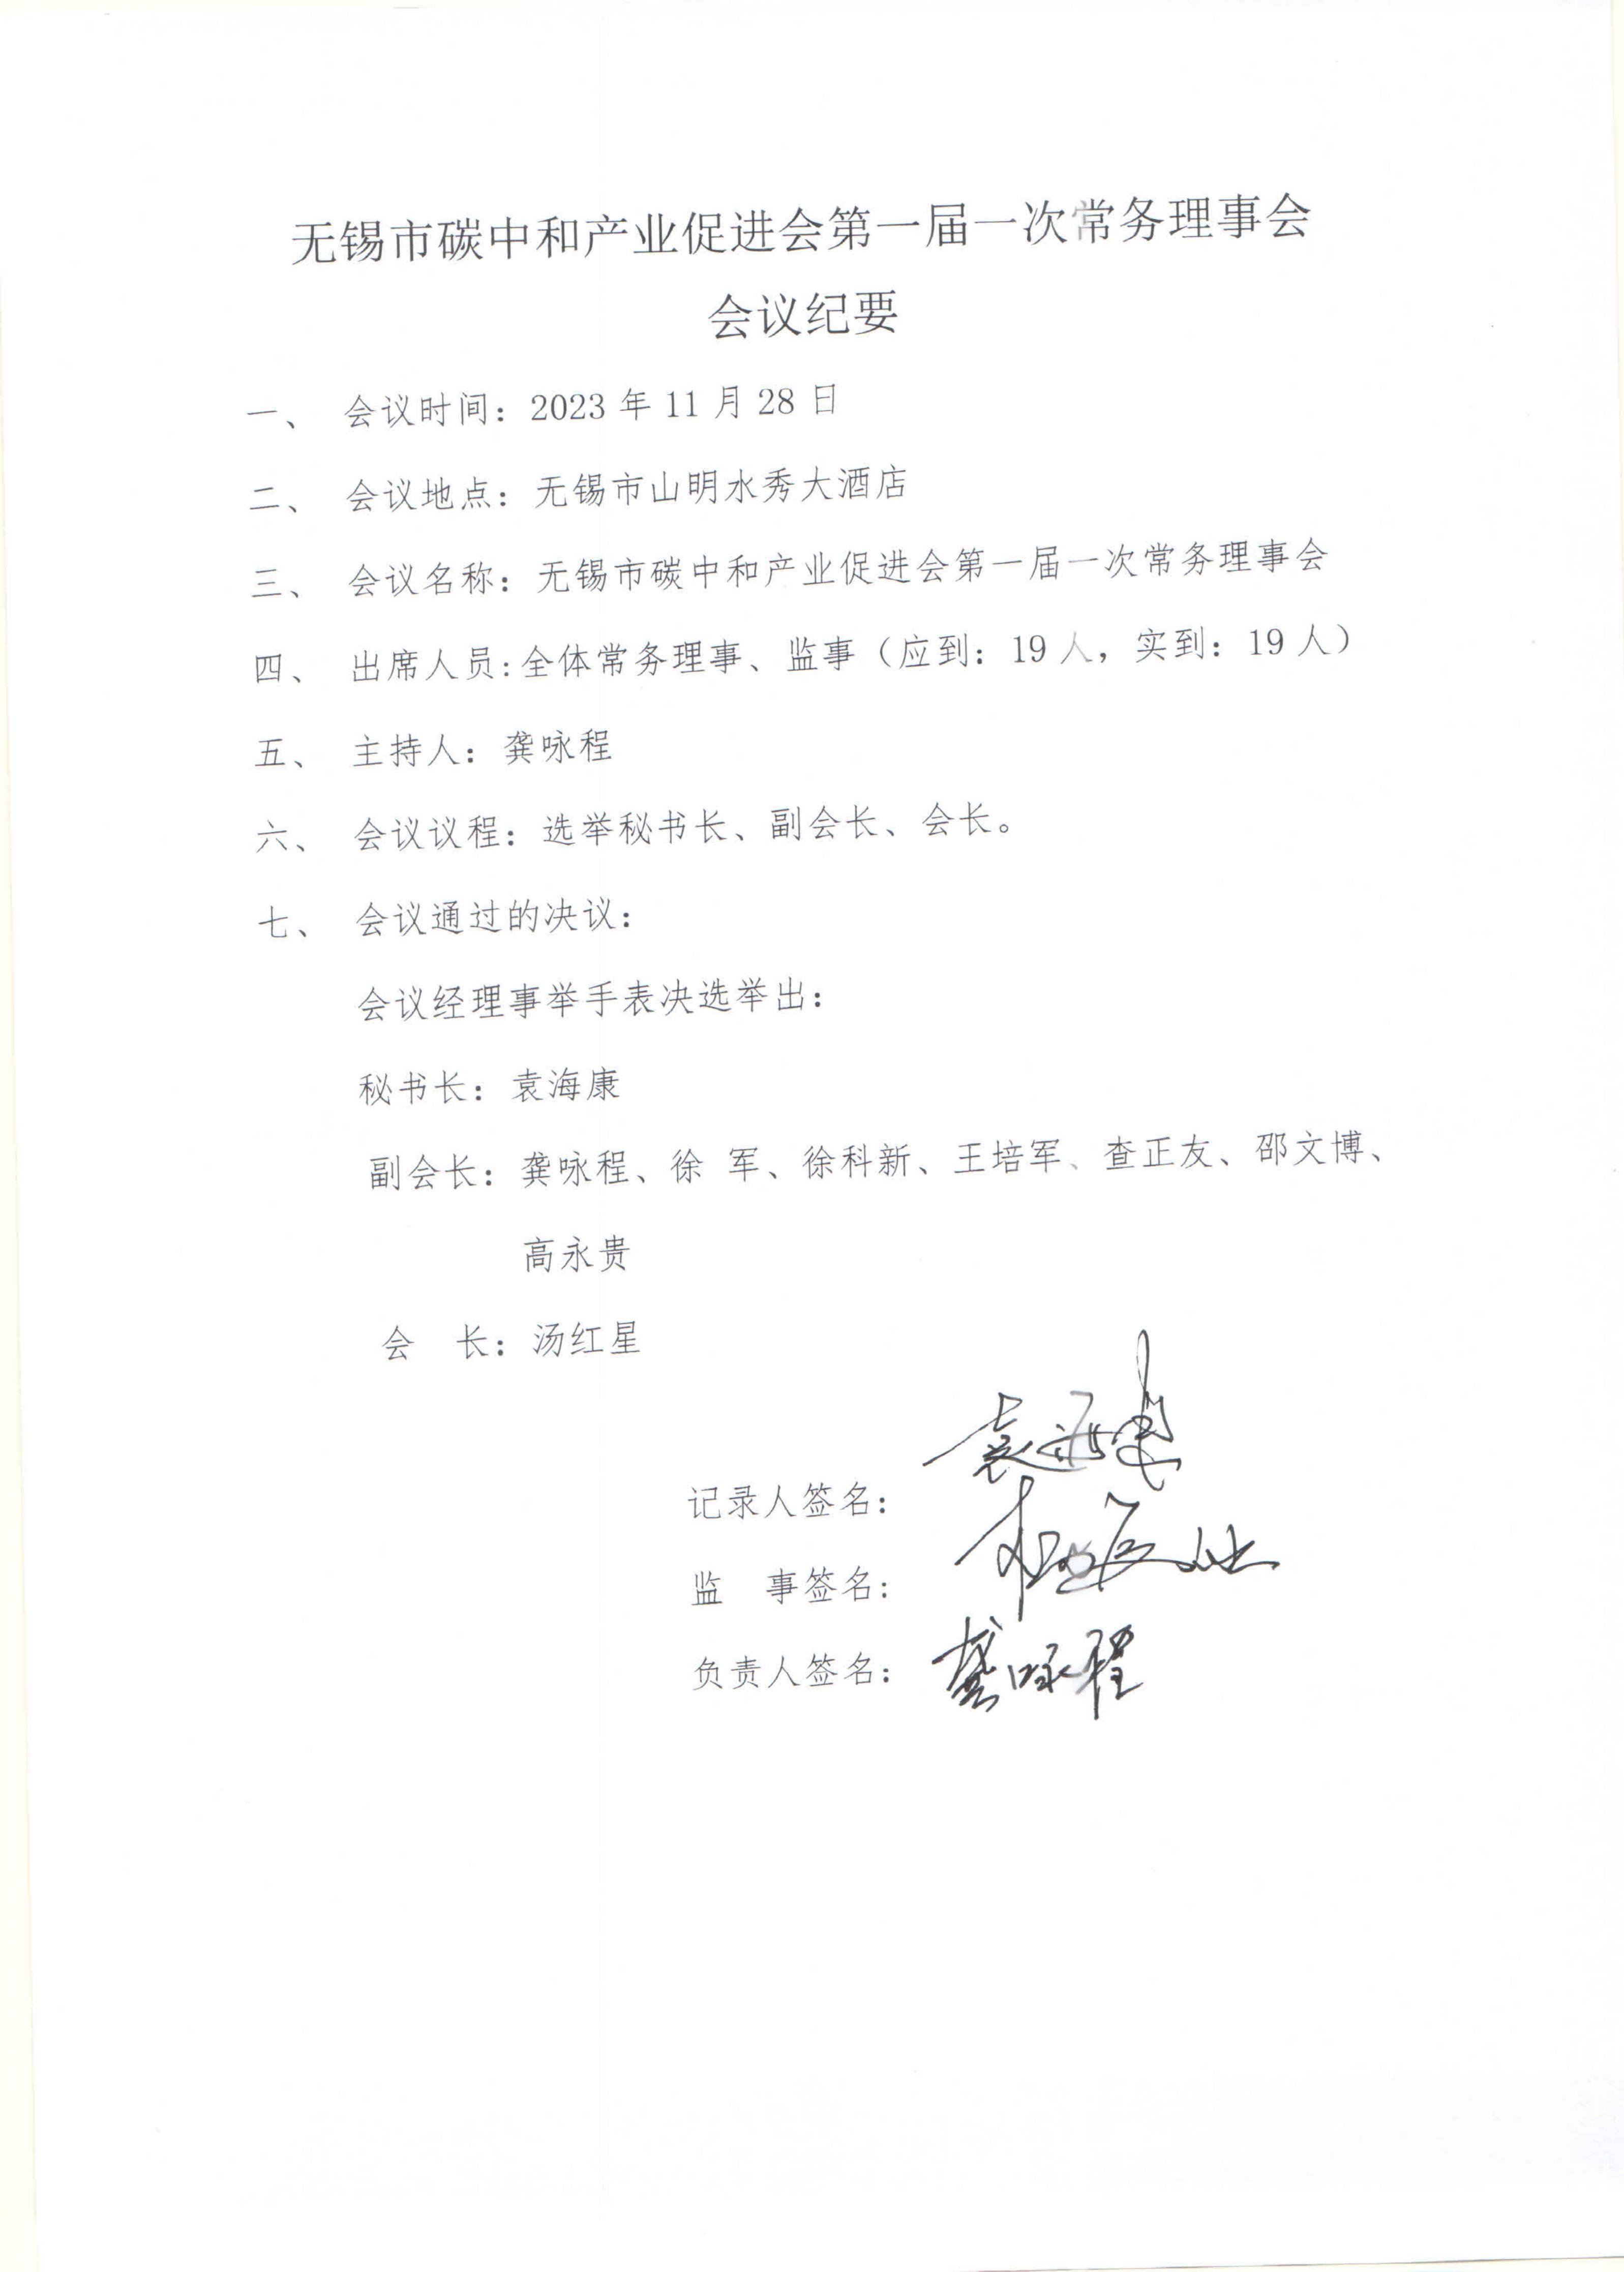 无锡市碳中和产业促进会第一届一次常务理事会
会议纪要
一、 会议时间：2023 年 11 月 28 日
二、 会议地点：无锡市山明水秀大酒店
三、 会议名称：无锡市碳中和产业促进会第一届一次常务理事会
四、 出席人员：全体常务理事、监事（应到：19 人，实到：19 人）
五、 主持人：龚咏程
六、 会议议程：选举秘书长、副会长、会长。
七、 会议通过的决议：
会议经理事举手表决选举出：
秘书长：袁海康
副会长：龚咏程、徐 军、徐科新、王培军、查正友、邵文博、
高永贵
会 长：汤红星
记录人签名：袁海康
监 事签名：
负责人签名：龚咏程